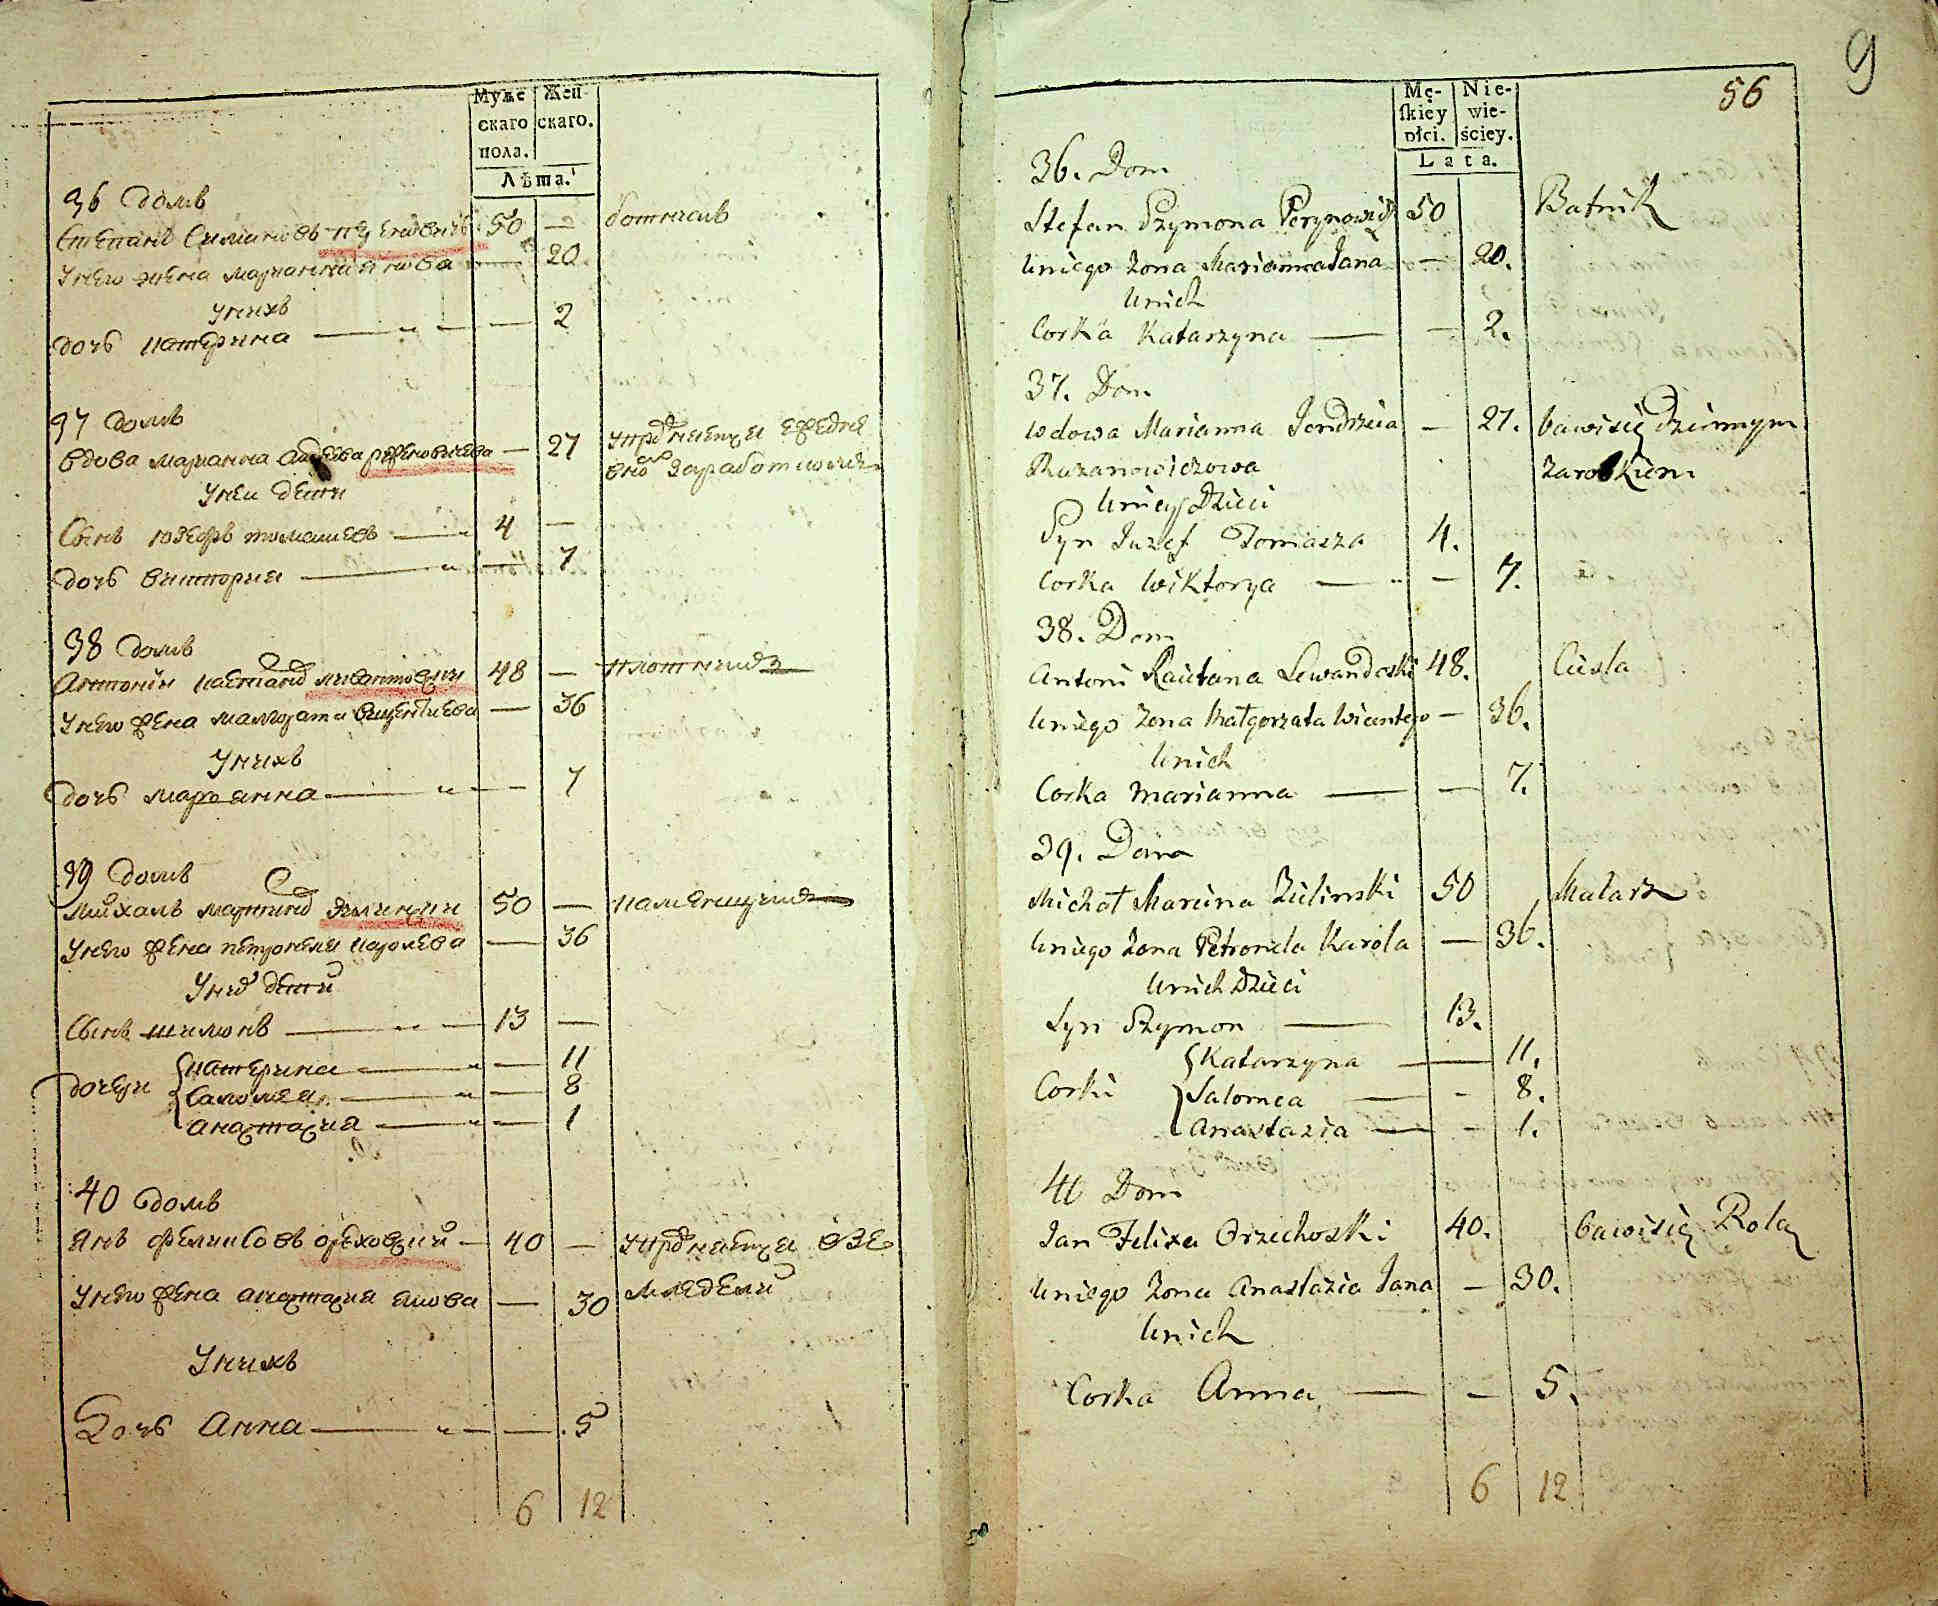 Муже
скаго
пола.
Жен
скаго.
Лѣта.
36 домъ
Степанъ Симановъ 50 —
У него жена марианна Янова — 20
У нихъ
дочь катерина — — 2
37 домъ
вдова марианна — 27
У неи дети
Сынъ юзефъ томашевъ — 4 —
дочь виктория — — 7
38 домъ
Антонiи 48 — плотникъ
У него жена малгората — 36
У нихъ
дочь марианна — — 7
39 домъ
Михалъ мартинъ 50 —
У него жена петронеля каролева — 36
У них дети
Сынъ шимонъ — 13 —
дочери катерина — — 11
саломея — — 8
анастасия — — 1
40 домъ
Янъ феликсовъ ореховский — 40 —
У него жена анастасия янова — 30
У нихъ
Дочь Анна — — 5
6 12
9
56
Mę-
skiey
płci.
Nie-
wie-
ściey.
Lata.
36. Dom
Stefan Szymona Perynowicz 50 Batnik
Uniego Zona Marianna Jana — 20.
Unich
Corka Katarzyna — — 2.
37. Dom
Wdowa Marianna Jendrzeia — 27. bawisię dziennym
Ruzanowiczowa zarobkiem
Uniey Dzieci
Syn Juzef Tomasza 4.
Corka Wiktorya — — 7.
38. Dom
Antoni Kaietana Lewandoski 48. Ciesla
Uniego Zona Małgorzata Wicentego — 36.
Unich
Corka Marianna — — 7.
39. Dom
Michał Marcina Zielinski 50 Malarz
Uniego Zona Petronela Karola — 36.
Unich Dzieci
Syn Szymon — 13.
Corki Katarzyna — 11.
Salomea — - 8.
Anastazia — - 1.
40 Dom
Jan Felixa Orzechoski 40. bawisię Rolą
Uniego Zona Anastazia Jana — 30.
Unich
Corka Anna — — 5.
6 12